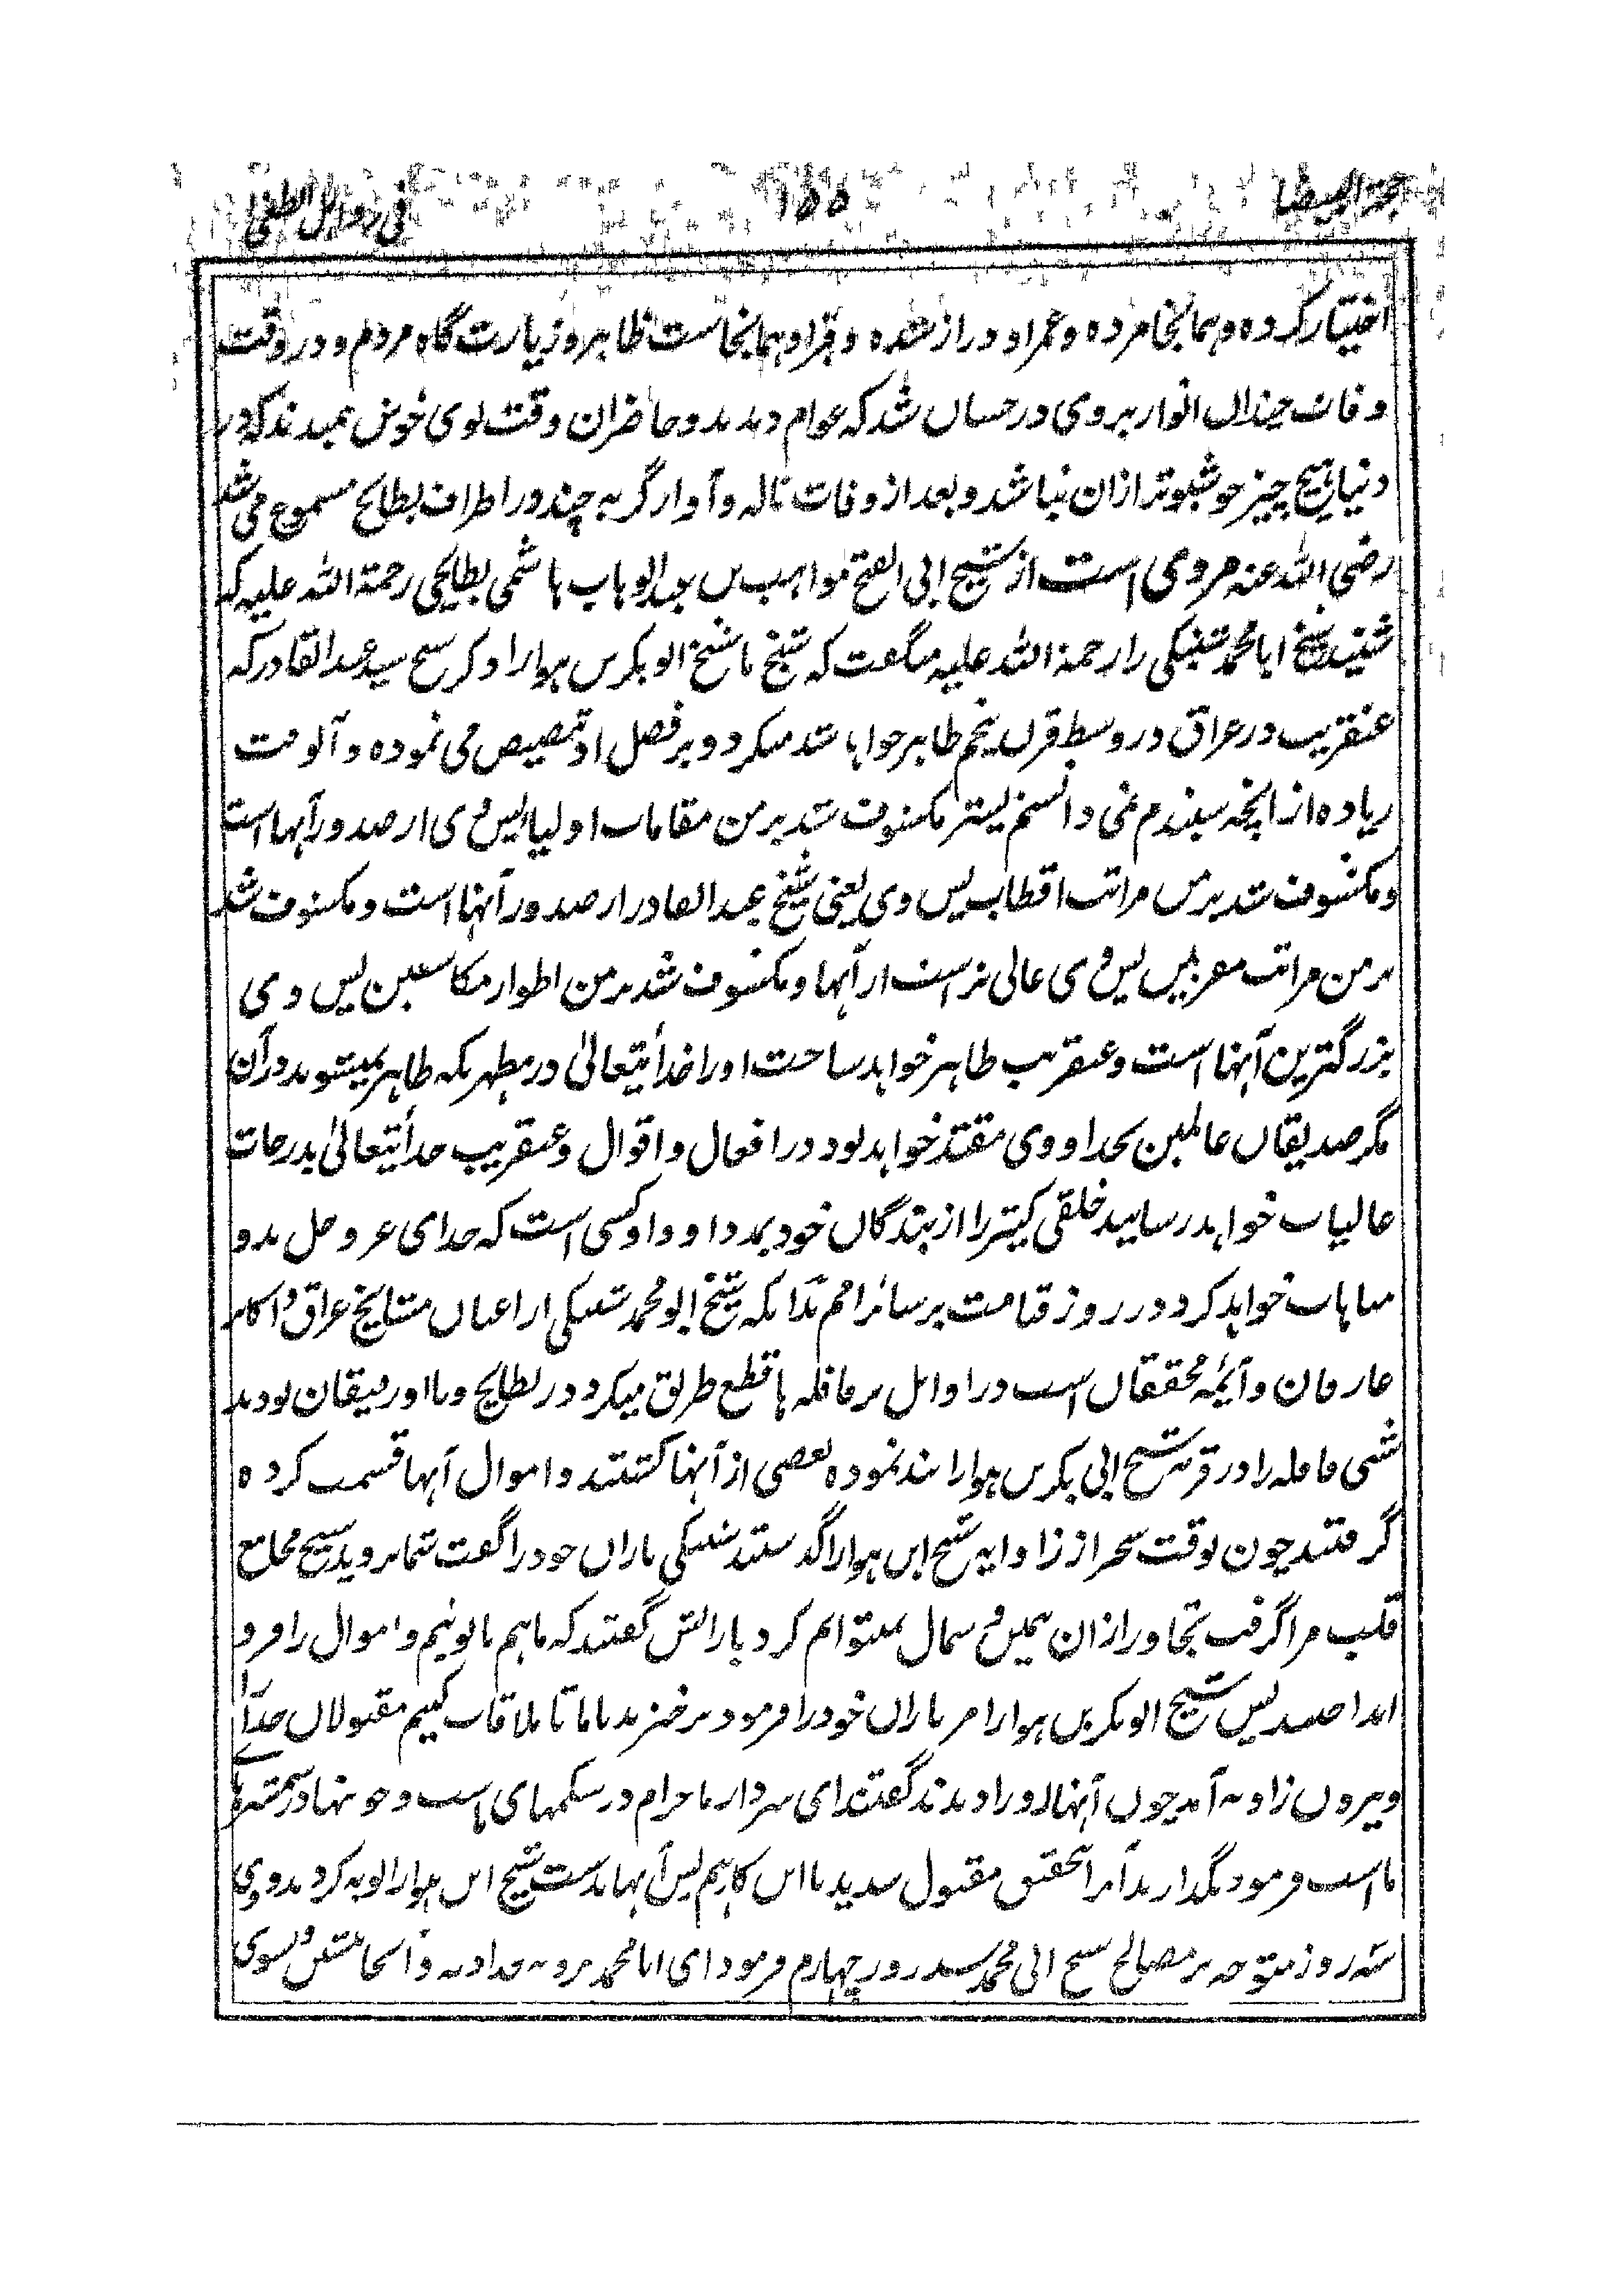 حجة البیضا ۱۵۵ فی
اختیار کرده و همانجا مرده و عمر او دراز شده و قبر او همانجاست ظاهر و زیارت گاه مردم و در وقت
وفات چندان انوار بر وی درخشان شد که عوام دیدند و حاضران وقت بوی خوش شمیدند که در
دنیا هیچ چیز خوشبوتر ازان نباشد و بعد از وفات ناله و آواز گریه چند در اطراف بطایح مسموع می شد
رضی الله عنه مروی است از شیخ ابی الفتح مواهب بن عبد الوهاب هاشمی بطایحی رحمة الله علیه که
شنیدم شیخ ابا محمد شنبکی را رحمة الله علیه میگفت که شیخ ما شیخ ابو بکر بن هوارا ذکر شیخ سید عبد القادر که
عنقریب در عراق در وسط قرن پنجم ظاهر خواهد شد میکرد و بر فضل او تنصیص می نموده و آنوقت
زیاده از اینچه شنیدم نمی دانستم پستر مکشوف شد بر من مقامات اولیا پس وی از صدور آنها است
و مکشوف شد بر من مراتب اقطاب پس وی یعنی شیخ عبد القادر از صدور آنها است و مکشوف شد
بر من مراتب مقربین پس وی عالی تر است از آنها و مکشوف شد بر من اطوار مکاشفین پس وی
بزرگترین آنها است و عنقریب ظاهر خواهد ساخت او را خدایتعالیٰ در مظهریکه ظاهر نمیشوند در آن
مگر صدیقان عالمین بخدا و وی مقتدا خواهد بود در افعال و اقوال و عنقریب خدایتعالیٰ بدرجات
عالیات خواهد رسانید خلقی کثیر را از بندگان خود بمدد او و او کسی است که خدای عز و جل بدو
مباهات خواهد کرد در روز قیامت بر سائر امم بدانکه شیخ ابو محمد شنبکی از اعیان مشایخ عراق و اکابر
عارفان و ائمه محققان است در اوایل بر قافله ها قطع طریق میکرد در بطایح و با او رفیقان بودند
شبی قافله را در قریه شیخ ابی بکر بن هوارا بند نموده بعضی از آنها کشتند و اموال آنها قسمت کرده
گرفتند چون بوقت سحر از زاویه شیخ ابن هوارا گذشتند شنبکی یاران خود را گفت شما بروید شیخ مجامع
قلب مرا گرفت تجاوز ازان یمین و شمال نمیتوانم کرد یارانش گفتند که ما هم با توئیم و اموال را فرو
انداختند پس شیخ ابو بکر بن هوارا مر یاران خود را فرمود برخیزید با ما تا ملاقات کنیم مقبولان خدا را
و بیرون زاویه آمد چون آنها او را دیدند گفتند ای سردار ما حرام در شکمهای ماست و خونها در شمشیرهای
ما است فرمود بگذارید آنرا تحقیق مقبول شدید با این کارهم پس آنها بدست شیخ ابن هوارا توبه کردند و وی
سه روز متوجه بر مصالح شیخ ابی محمد شد روز چهارم فرمود ای ابا محمد برو به حدادیه و آنجا بنشین و بسوی